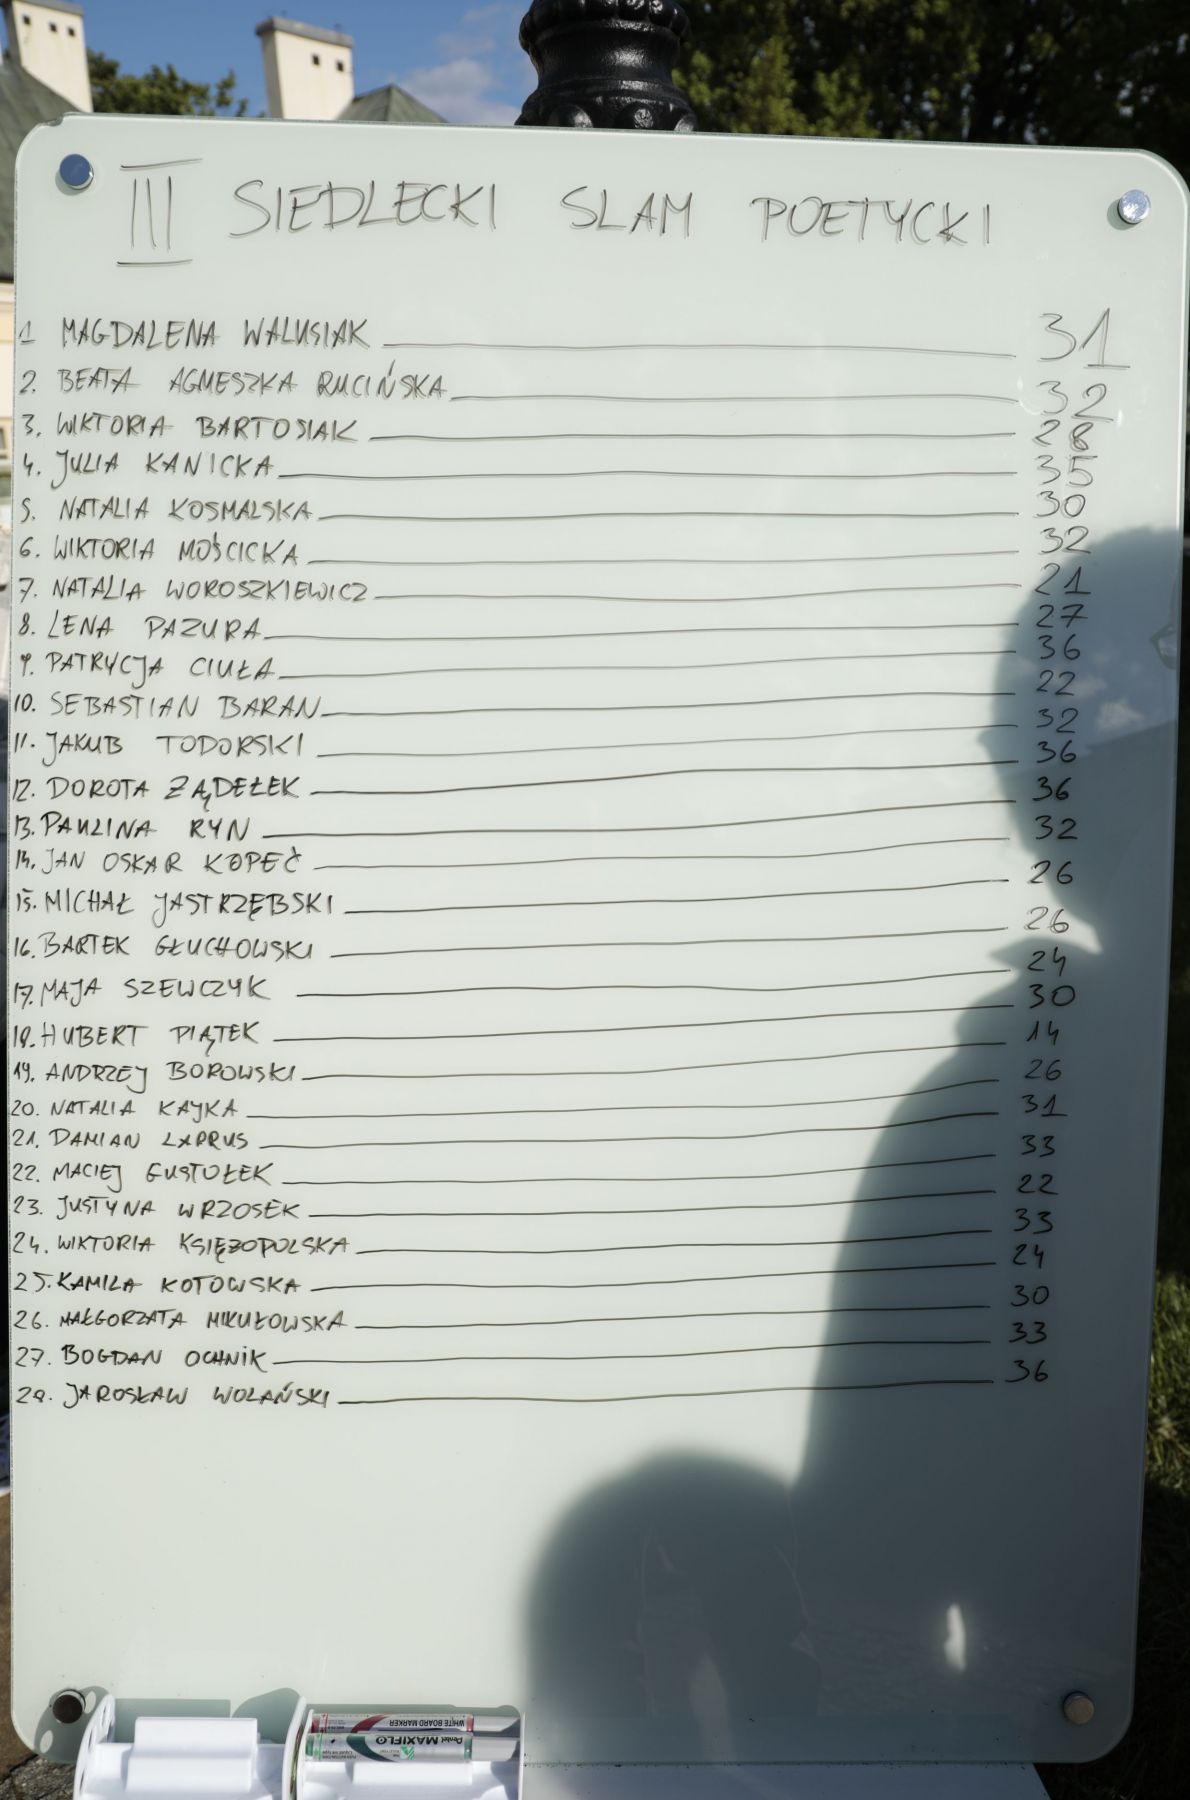 III SIEDLECKI SLAM POETYCKI
1 MAGDALENA WALUSIAK 31
2. BEATA AGNIESZKA RUCIŃSKA 32
3. WIKTORIA BARTOSIAK 28
4. JULIA KANICKA 35
5. NATALIA KOSMALSKA 30
6. WIKTORIA MOŚCICKA 32
7. NATALIA WOROSZKIEWICZ 21
8. LENA PAZURA 27
9. PATRYCJA CIUŁA 36
10. SEBASTIAN BARAN 22
11. JAKUB TODORSKI 32
12. DOROTA ZĄDEŁEK 36
13. PAULINA RYN 36
14. JAN OSKAR KOPEĆ 32
15. MICHAŁ JASTRZĘBSKI 26
16. BARTEK GŁUCHOWSKI 26
17. MAJA SZEWCZYK 24
18. HUBERT PIĄTEK 30
19. ANDRZEJ BOROWSKI 14
20. NATALIA KAJKA 26
21. DAMIAN LAPRUS 31
22. MACIEJ GUSTOŁEK 33
23. JUSTYNA WRZOSEK 22
24. WIKTORIA KSIĘŻOPOLSKA 33
25. KAMILA KOTOWSKA 24
26. MAŁGORZATA MIKUŁOWSKA 30
27. BOGDAN OCHNIK 33
28. JAROSŁAW WOLAŃSKI 36
WHITE BOARD MARKER
Pentel MAXIFLO